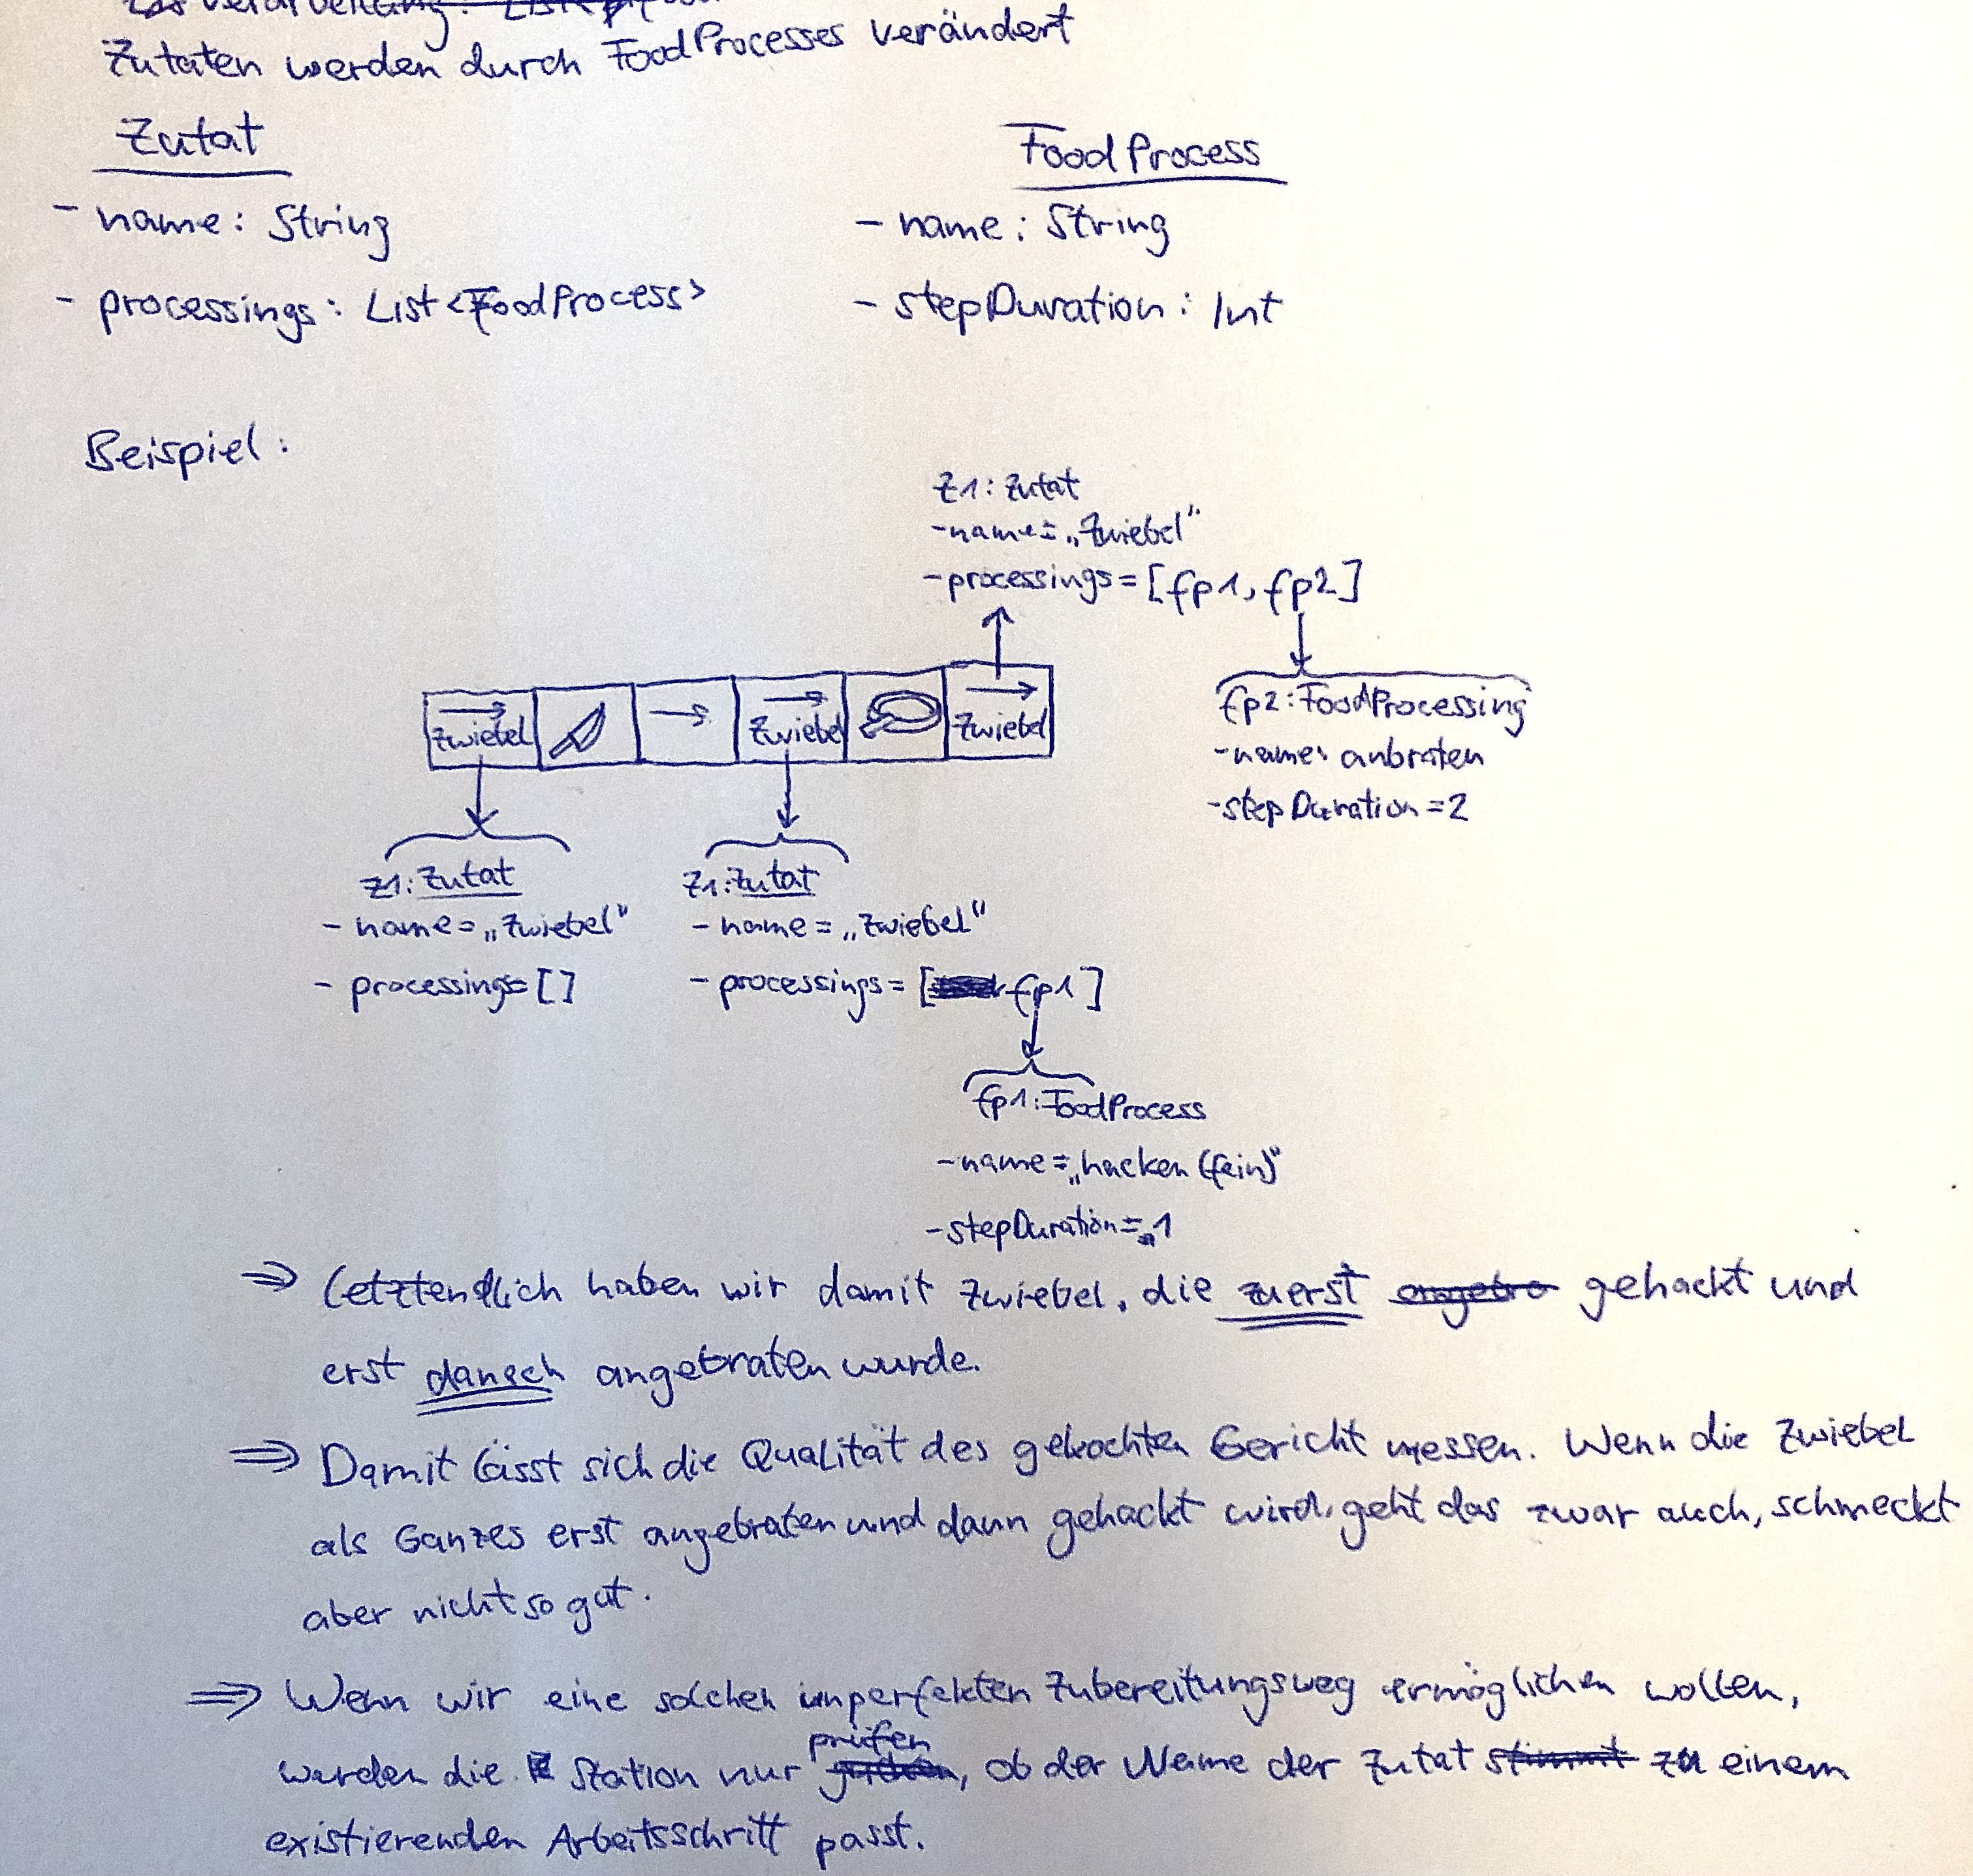 Zutaten werden durch FoodProcesses verändert
Zutat
- name: String
- processings: List<FoodProcess>
FoodProcess
- name: String
- stepDuration: Int
Beispiel:
Z1: Zutat
- name = „Zwiebel"
- processings = [fp1, fp2]
fp2: FoodProcessing
- name: anbraten
- stepDuration = 2
Zwiebel
Zwiebel
Zwiebel
Z1: Zutat
- name = „Zwiebel"
- processings = []
Z1: Zutat
- name = „Zwiebel"
- processings = [fp1]
fp1: FoodProcess
- name = „hacken (fein)"
- stepDuration = 1
⇒ Letztendlich haben wir damit Zwiebel, die zuerst gehackt und
erst danach angebraten wurde.
⇒ Damit lässt sich die Qualität des gekochten Gericht messen. Wenn die Zwiebel
als Ganzes erst angebraten und dann gehackt wird, geht das zwar auch, schmeckt
aber nicht so gut.
⇒ Wenn wir eine solchen imperfekten Zubereitungsweg ermöglichen wollen,
werden die Station nur prüfen, ob der Name der Zutat zu einem
existierenden Arbeitsschritt passt.